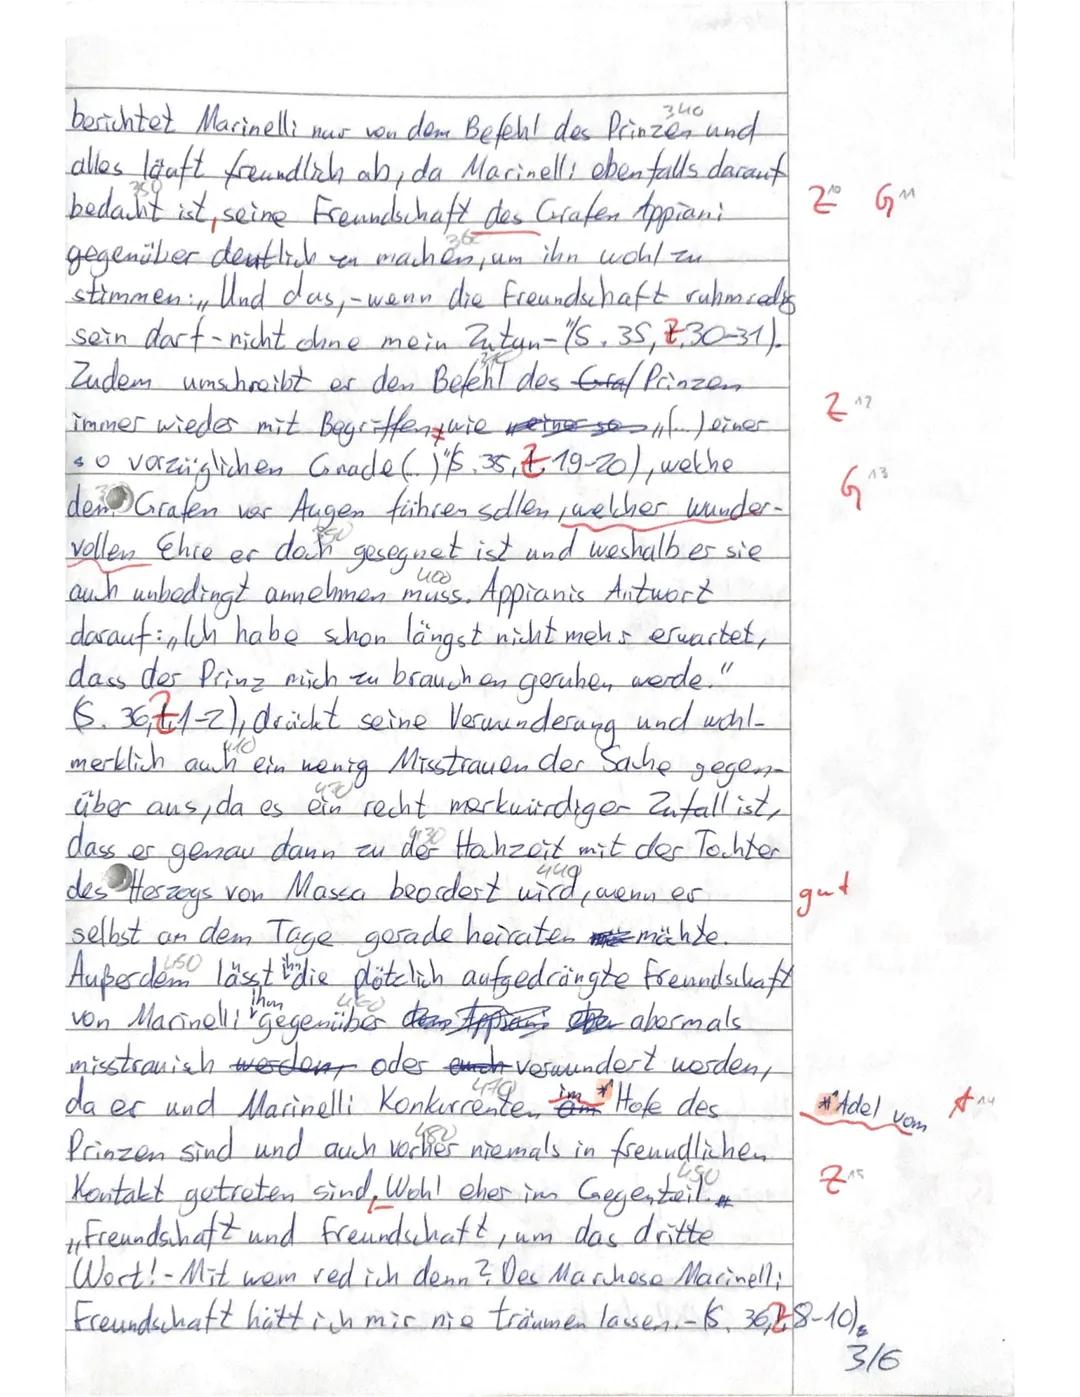 340
berichtet Marinelli nur von dem Befehl des Prinzen und
alles läuft freundlich ab, da Marinelli ebenfalls darauf
350
bedacht ist, seine Freundschaft des Grafen Appiani Z10 G11
360
gegenüber deutlich zu machen, um ihn wohl zu
stimmen: „Und das, - wenn die Freundschaft ruhmredig
sein darf - nicht ohne mein Zutun-" (S. 35, Z. 30-31).
370
Zudem umschreibt er den Befehl des Graf Prinzen
immer wieder mit Begriffen, wie „(...) einer Z12
so vorzüglichen Gnade (...)" (S. 35, Z. 19-20), welche G13
dem Grafen vor Augen führen sollen, welcher wunder-
vollen Ehre er doch gesegnet ist und weshalb er sie
400
auch unbedingt annehmen muss. Appianis Antwort
darauf: „Ich habe schon längst nicht mehr erwartet,
dass der Prinz mich zu brauchen geruhen werde."
(S. 36, Z. 1-2), drückt seine Verwunderung und wohl-
410
merklich auch ein wenig Misstrauen der Sache gegen-
420
über aus, da es ein recht merkwürdiger Zufall ist,
430
dass er genau dann zu der Hochzeit mit der Tochter
440
des Herzogs von Massa beordert wird, wenn er gut
selbst an dem Tage gerade heiraten möchte.
450
Außerdem lässt ihn die plötzlich aufgedrängte Freundschaft
460
von Marinelli ihm gegenüber dem Appiani aber abermals
misstrauisch werden, oder auch verwundert werden,
470
da er und Marinelli Konkurrenten im * Hofe des * Adel vom A14
480
Prinzen sind und auch vorher niemals in freundlichen
490
Kontakt getreten sind, Wohl eher im Gegenteil. Z15
„Freundschaft und Freundschaft, um das dritte
Wort! - Mit wem red ich denn? Des Marchese Marinelli
Freundschaft hätt ich mir nie träumen lassen. - (S. 36, Z. 8-10).
3/6